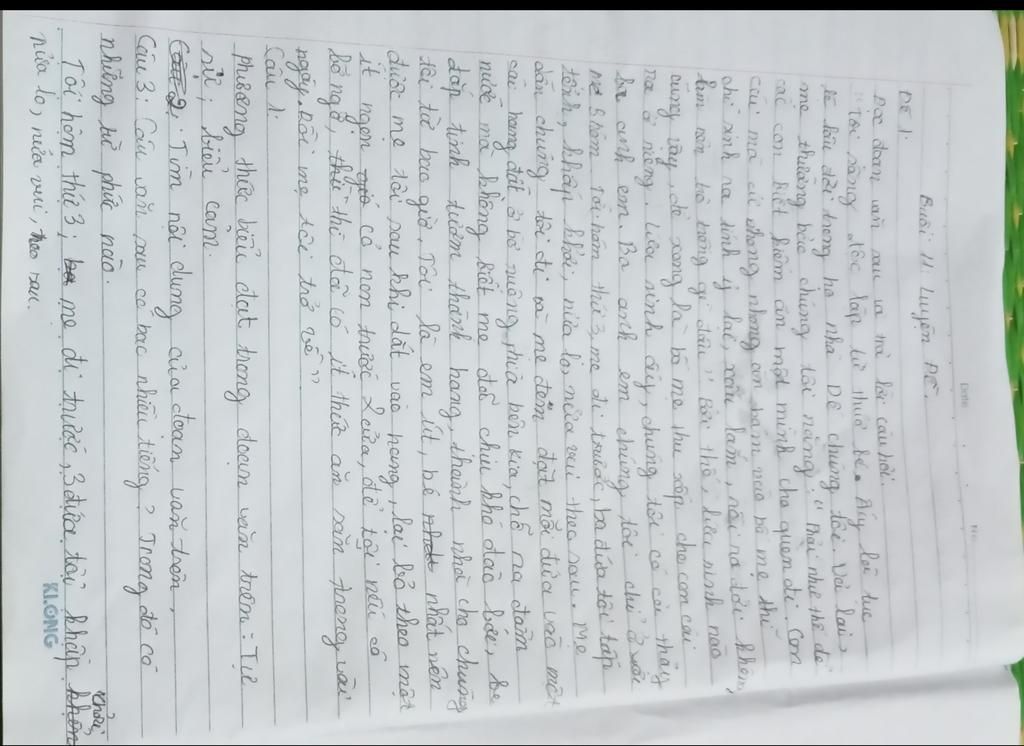 Date No
Buổi 11: Luyện Đề.
Đề 1:
Đọc đoạn văn sau và trả lời câu hỏi.
"Tôi sống độc lập từ thủa bé. Ấy là tục
lệ lâu đời trong họ nhà Dế chúng tôi. Vả lại,
mẹ thường bảo chúng tôi rằng: "Phải như thế để
các con biết kiếm ăn một mình cho quen đi. Con
cái mà cứ nhong nhong ăn bám vào bố mẹ thì
chỉ sinh ra tính ỷ lại, xấu lắm, rồi ra đời không
làm nên trò trống gì đâu" Bởi thế, lứa sinh nào
cũng vậy, đẻ xong là bố mẹ thu xếp cho con cái
ra ở riêng. Lứa sinh ấy, chúng tôi có cả thảy
ba anh em. Ba anh em chúng tôi chỉ ở với
mẹ 3 hôm. Tới hôm thứ 3, mẹ đi trước, ba đứa tôi tấp
tểnh, khấp khởi, nửa lo nửa vui theo sau. Mẹ
dẫn chúng tôi đi và mẹ đem đặt mỗi đứa vào một
cái hang đất ở bờ ruộng phía bên kia, chỗ ra đầm
nước mà không biết mẹ đã chịu khó đào bới, be
đắp tinh tươm thành hang, thành nhà cho chúng
tôi từ bao giờ. Tôi là em út, bé nhất nên
được mẹ tôi sau khi dắt vào hang, lại bỏ theo một
ít ngọn cỏ non trước cửa, để tôi nếu có
bỡ ngỡ, thì đã có ít thức ăn sẵn trong vài
ngày. Rồi mẹ tôi trở về"
Câu 1:
Phương thức biểu đạt trong đoạn văn trên: Tự
sự; biểu cảm.
Câu 2: Tìm nội dung của đoạn văn trên,
Câu 3: Câu văn sau có bao nhiêu tiếng? Trong đó có
những từ phức nào.
Tới hôm thứ 3, mẹ đi trước, 3 đứa tôi khấp khởi,
nửa lo, nửa vui, theo sau.
KLONG